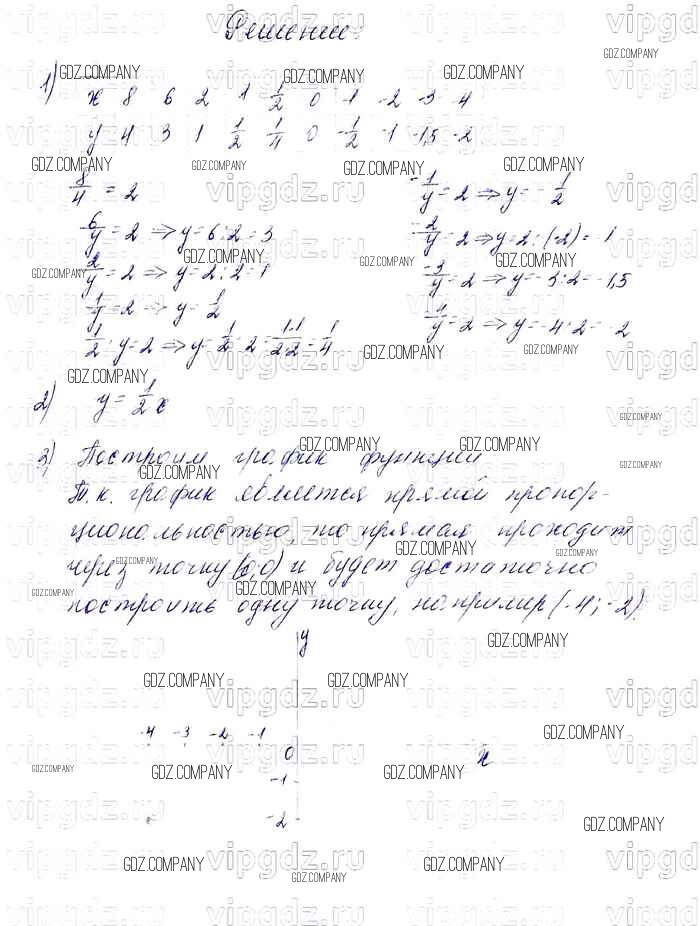 Решение:
1)
x 8 6 2 1 1/2 0 -1 -2 -3 -4
y 4 3 1 1/2 1/4 0 -1/2 -1 -1,5 -2
8/4 = 2
6/y = 2 ⇒ y = 6 : 2 = 3
2/y = 2 ⇒ y = 2 : 2 = 1
1/y = 2 ⇒ y = 1/2
1/2 : y = 2 ⇒ y = 1/2 : 2 = 1·1/2·2 = 1/4
-1/y = 2 ⇒ y = -1/2
-2/y = 2 ⇒ y = 2 : (-2) = 1
-3/y = 2 ⇒ y = -3 : 2 = -1,5
2 ⇒ y = -4 : 2 = -2
2) y = 1/2 x
3) Построим график функции
Т.к. график является прямой пропор-
циональностью, то прямая проходит
через точку (0;0) и будет достаточно
построить одну точку, например (-4; -2).
y
-4 -3 -2 -1
0 x
-1
-2
GDZ.COMPANY
vipgdz.ru